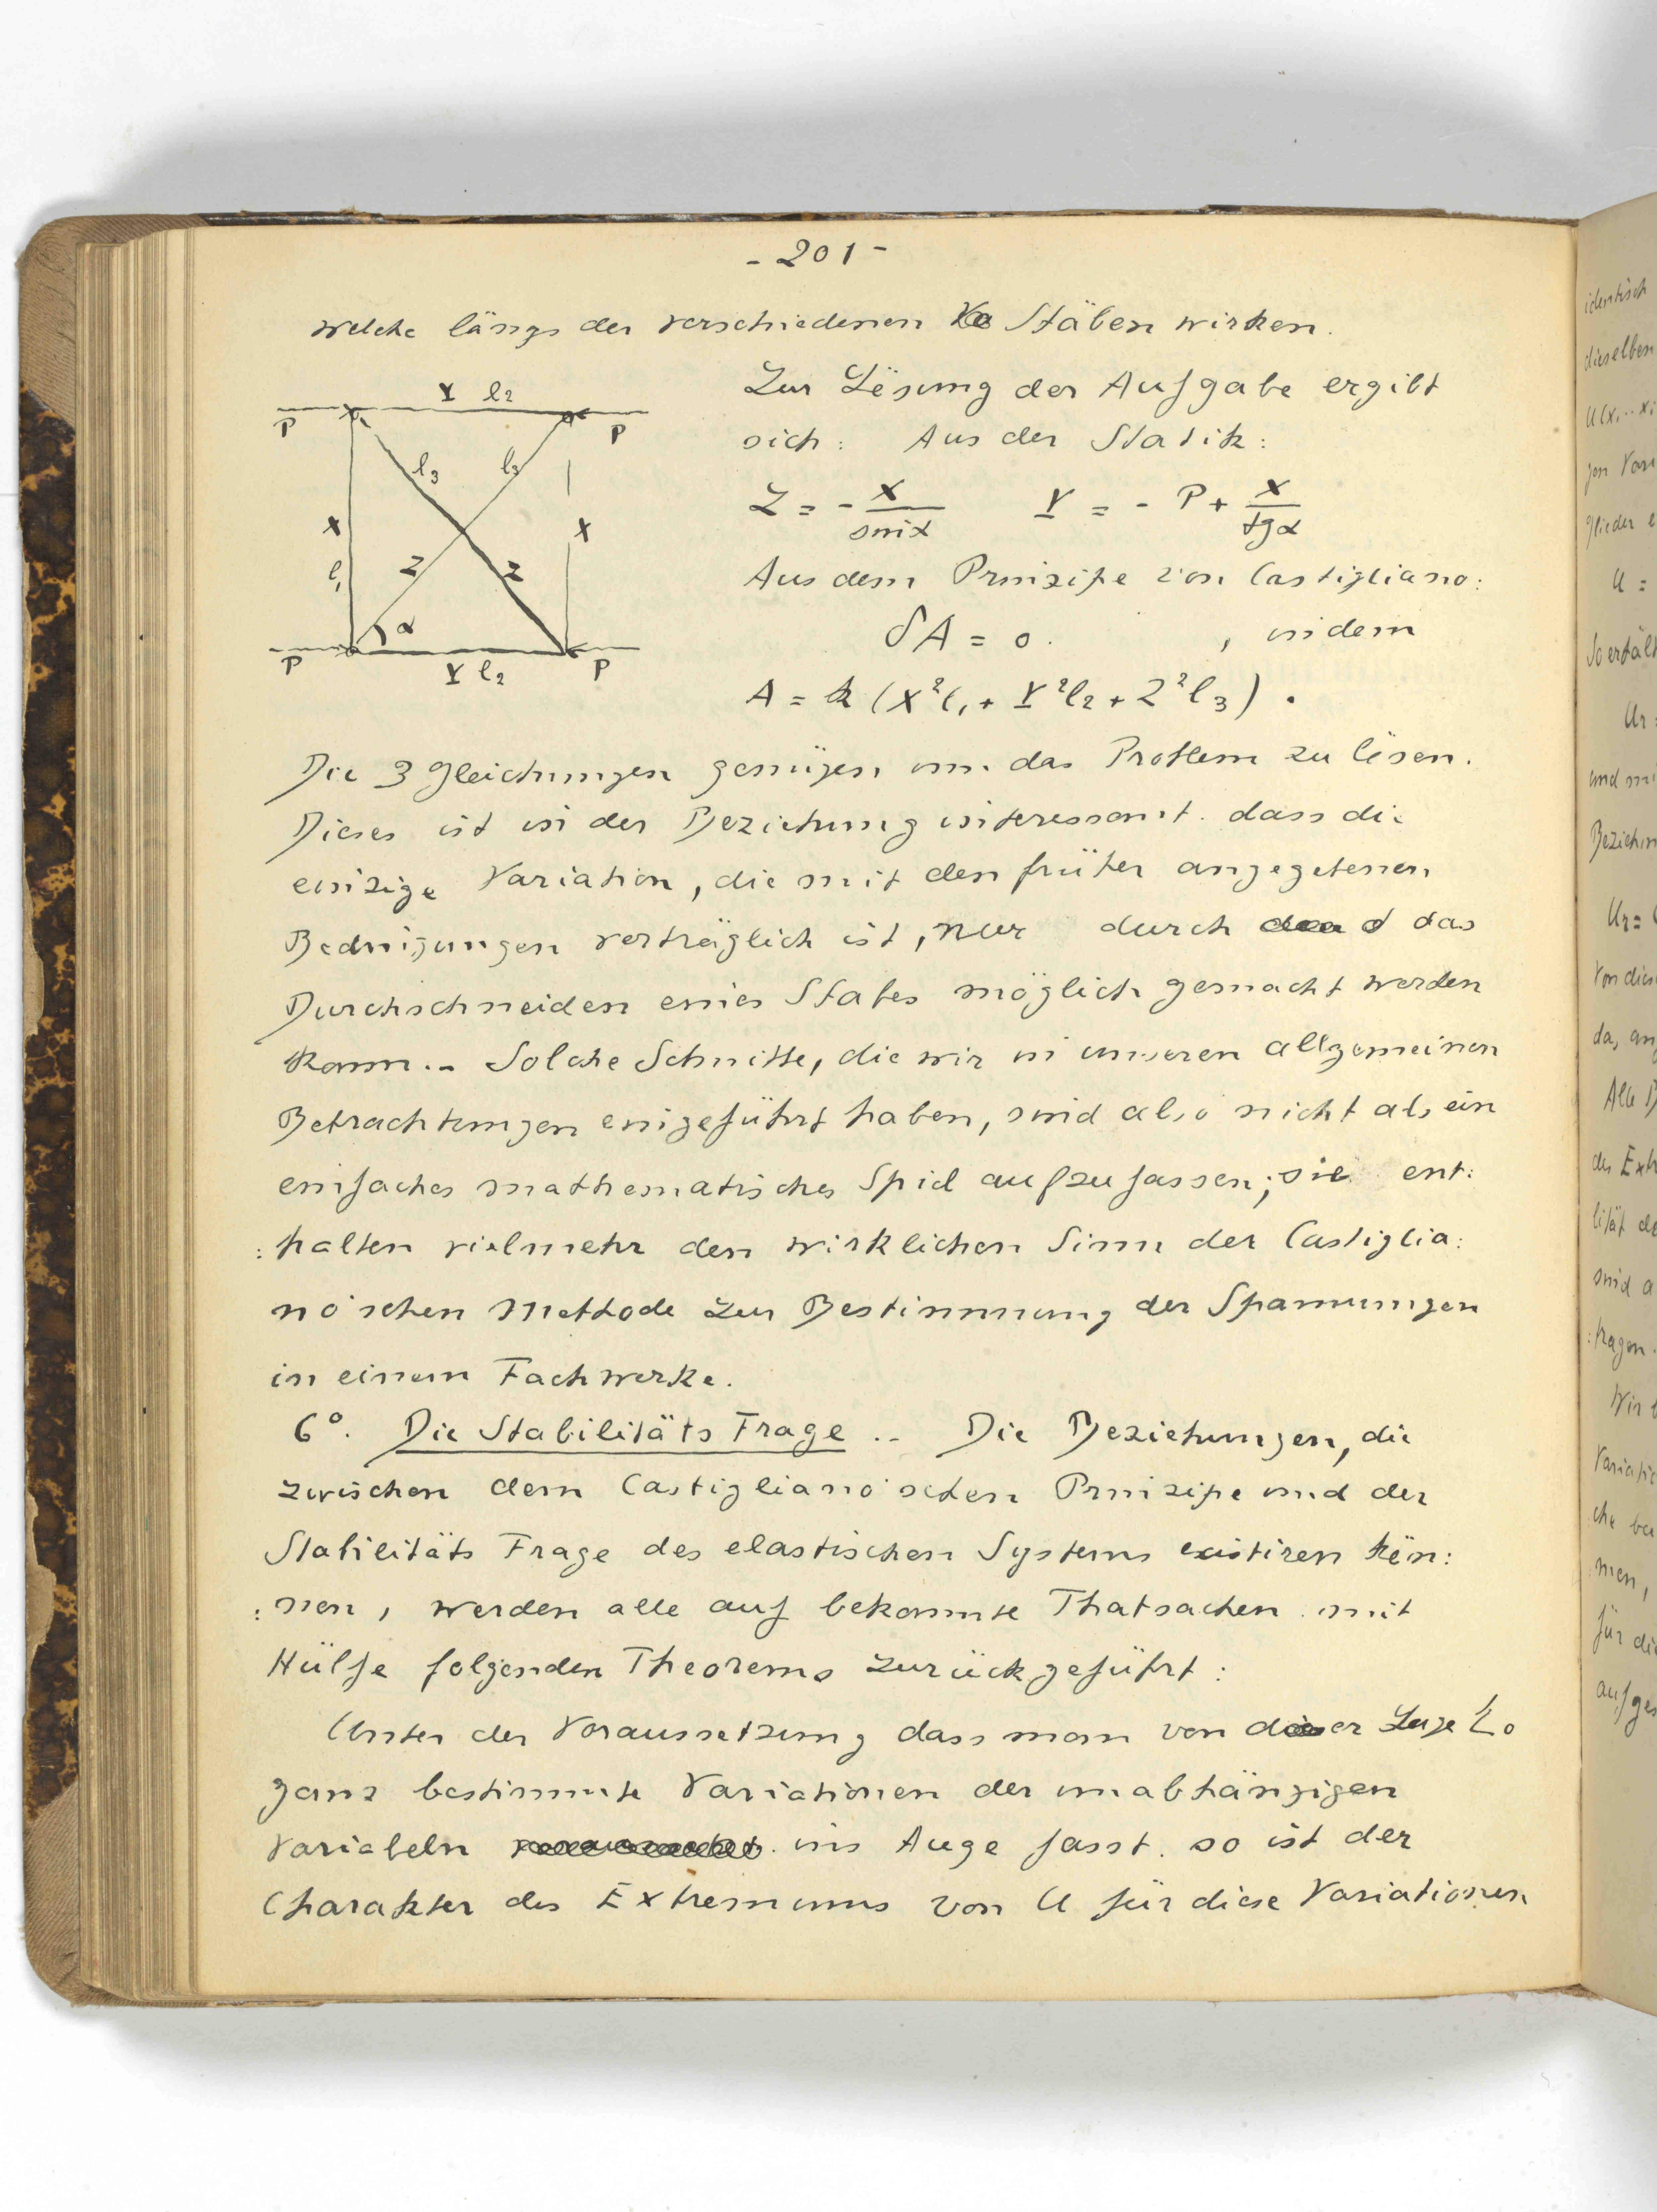 - 201 -
welche längs der verschiedenen Stäben wirken.
Y l2
P P
l3 l3
X X
l1 Z Z
α
P P
Y l2
Zur Lösung der Aufgabe ergibt
sich: Aus der Statik:
Z = - X/sinα Y = - P + X/tgα
Aus dem Prinzipe von Castigliano:
δA = 0. , indem
A = k (X²l1 + Y²l2 + Z²l3) .
Die 3 Gleichungen genügen um das Problem zu lösen.
Dieses ist in der Beziehung interessant. dass die
einzige Variation, die mit den früher angegebenen
Bedingungen verträglich ist, nur durch das
Durchschneiden eines Stabes möglich gemacht werden
kann.- Solche Schnitte, die wir in unseren allgemeinen
Betrachtungen eingeführt haben, sind also nicht als ein
einfaches mathematisches Spiel aufzufassen; sie ent:
:halten vielmehr den wirklichen Sinn der Castiglia:
no'schen Methode zur Bestimmung der Spannungen
in einem Fachwerke.
6°. Die Stabilitäts Frage .- Die Beziehungen, die
zwischen dem Castigliano'schen Prinzipe und der
Stabilitäts Frage des elastischen Systems existiren kön:
:nen, werden alle auf bekannte Thatsachen mit
Hülfe folgenden Theorems zurückgeführt:
Unter der Voraussetzung dass man von dieser Lage Σ0
ganz bestimmte Variationen der unabhängigen
Variabeln ins Auge fasst. so ist der
Charakter des Extremums von U für diese Variationen
identisch
dieselben
U(x1...x
gen Vari
glieder e
U =
So erhäl
Ur =
und mi
Ur =
Von dies
da, an
des Ext
lität de
sind a
:tragen.
Variatio
che be
men,
für di
aufge